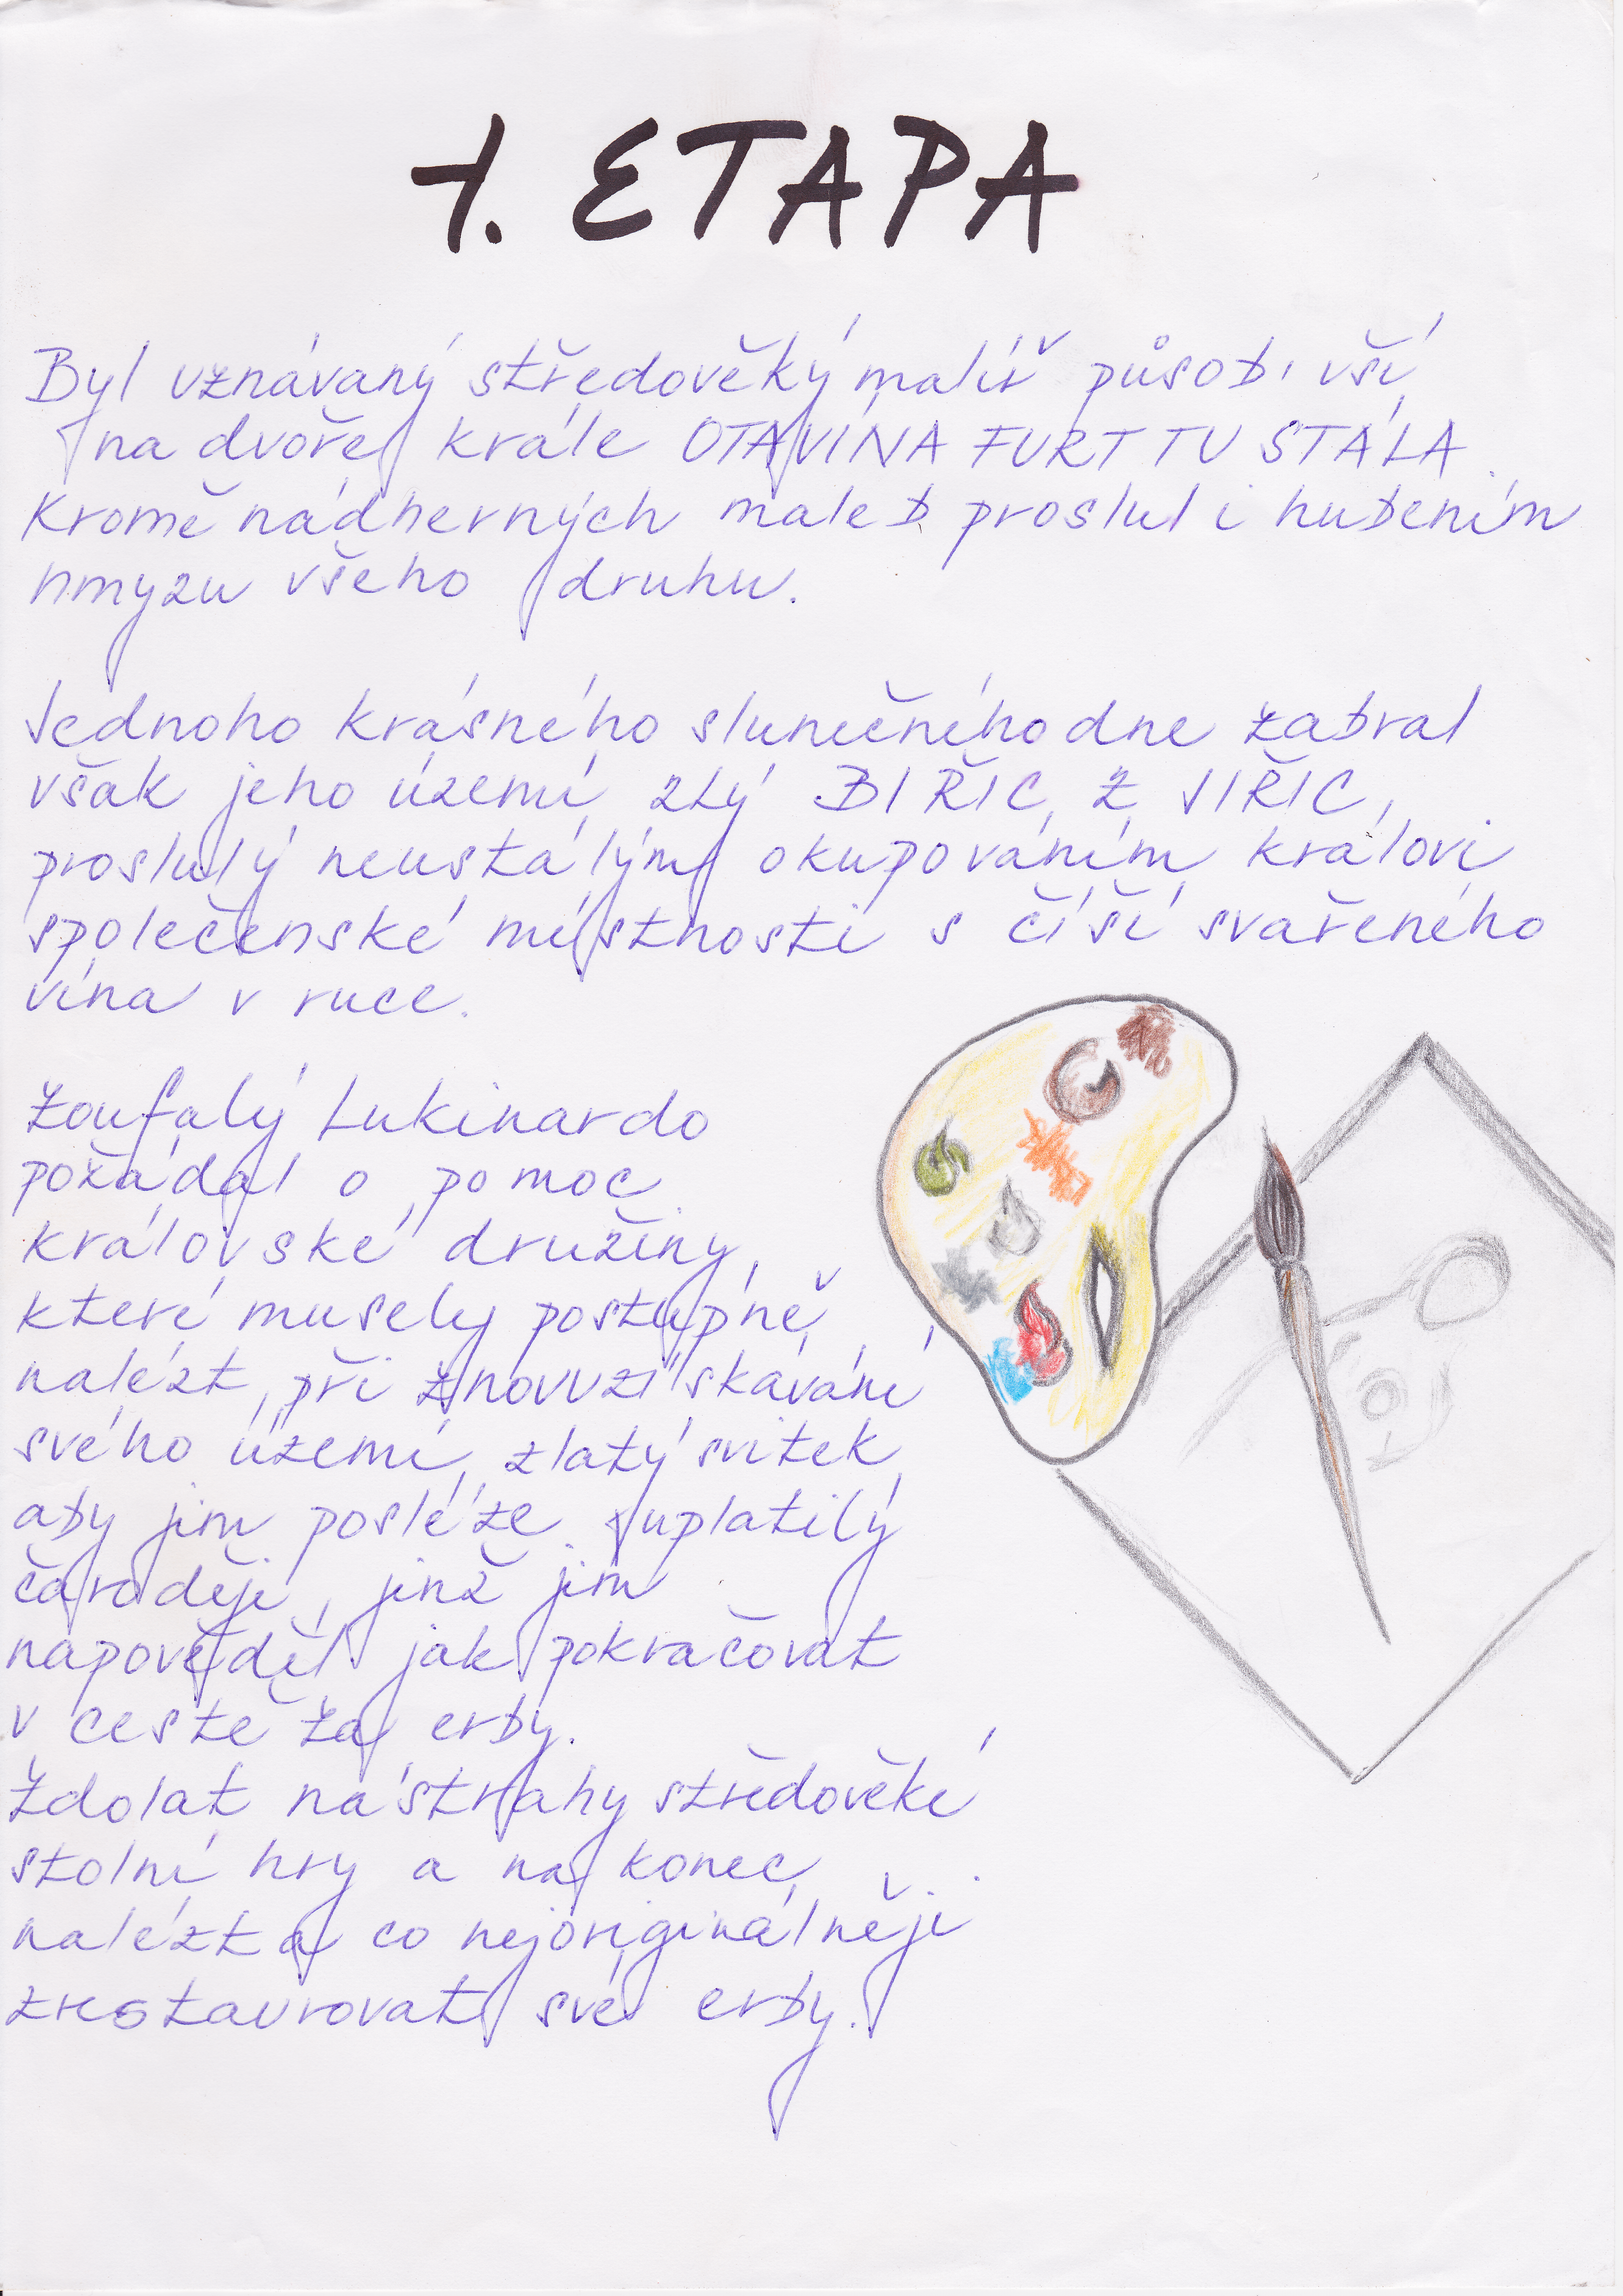 1. ETAPA
Byl uznávaný středověký malíř působivší
na dvoře krále OTAVÍNA FURT TU STÁLA.
Kromě nádherných maleb proslul i hubením
hmyzu všeho druhu.
Jednoho krásného slunečného dne zabral
však jeho území zlý BIŘIC Z JIŘIC,
proslulý neustálým okupováním královi
společenské místnosti s číší svařeného
vína v ruce.
Zoufalý Lukinardo
požádal o pomoc
královské družiny,
které musely postupně
nalézt, při znovuzískávání
svého území, zlatý svitek,
aby jim posléze uplatily
čaroději, jenž jim
napověděl jak pokračovat
v cestě za erby.
Zdolat nástrahy středověké
stolní hry a na konec
nalézt a co nejoriginálněji
zrestaurovat své erby.